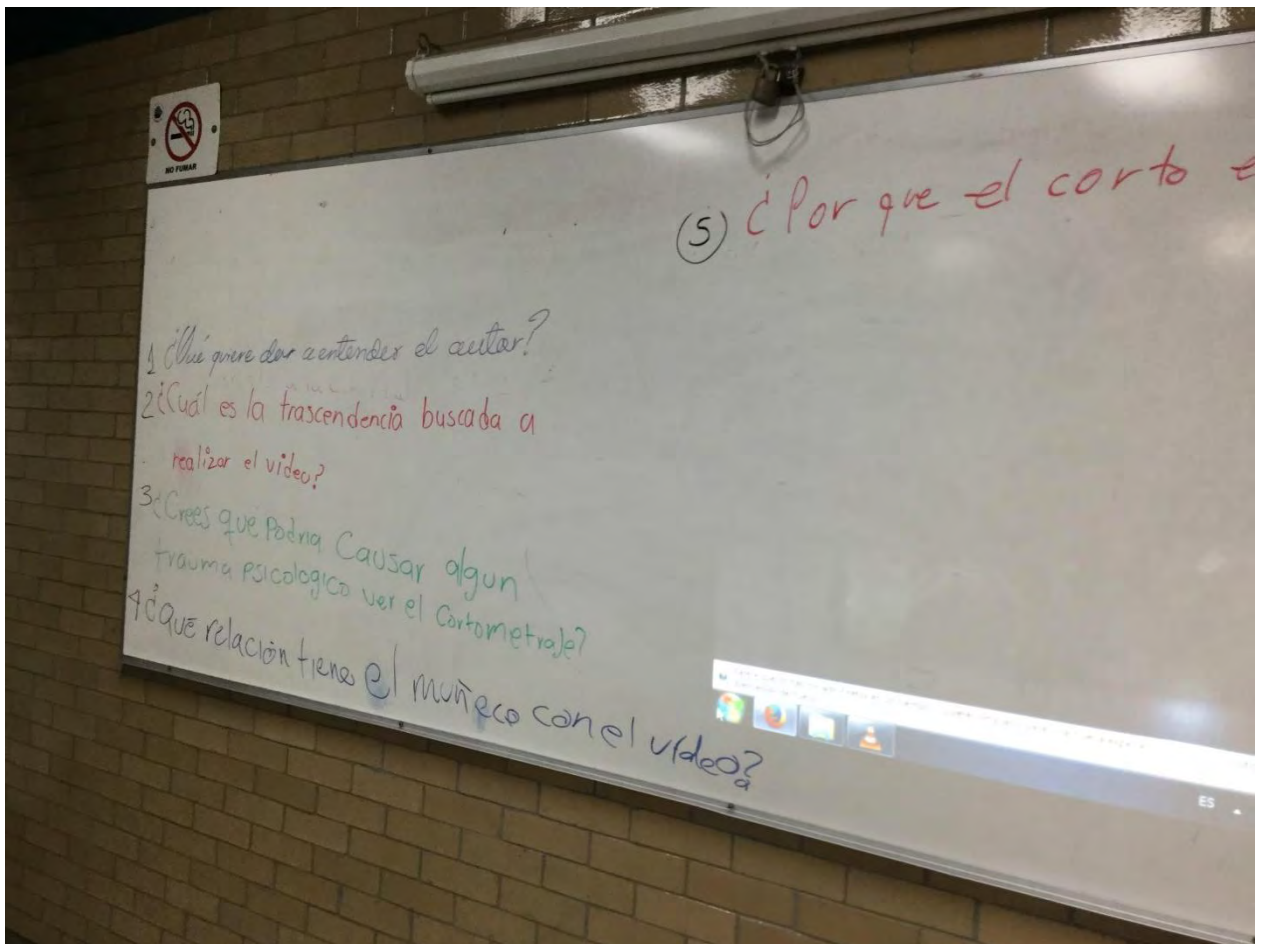 NO FUMAR
⑤ ¿Por que el corto e
1 ¿Qué quiere dar a entender el autor?
2 ¿Cuál es la trascendencia buscada a
realizar el video?
3 ¿Crees que Podria Causar algun
trauma Psicologico ver el Cortometraje?
4 ¿QUE relación tiene el muñeco con el vídeo?
ES